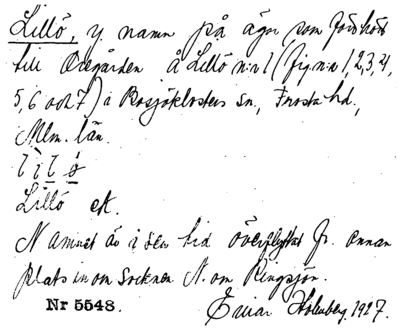 Lillö, y. namn på ägor som förs hört
till Oregården å Lillö n:o 1 (fig. n:o 1, 2, 3, 4,
5, 6 och 7) i Bosjöklosters sn, Frosta hd,
Mlm. län.
Lillö ek.
Namnet är i sen tid överflyttat fr. annan
plats inom socknen N. om Ringsjön.
Nr 5548. Einar Holmberg. 1927.